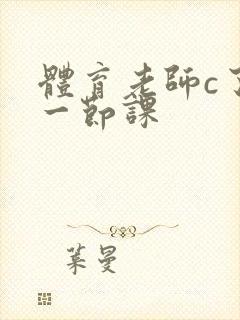 體育老師c了
一節課
葉曼